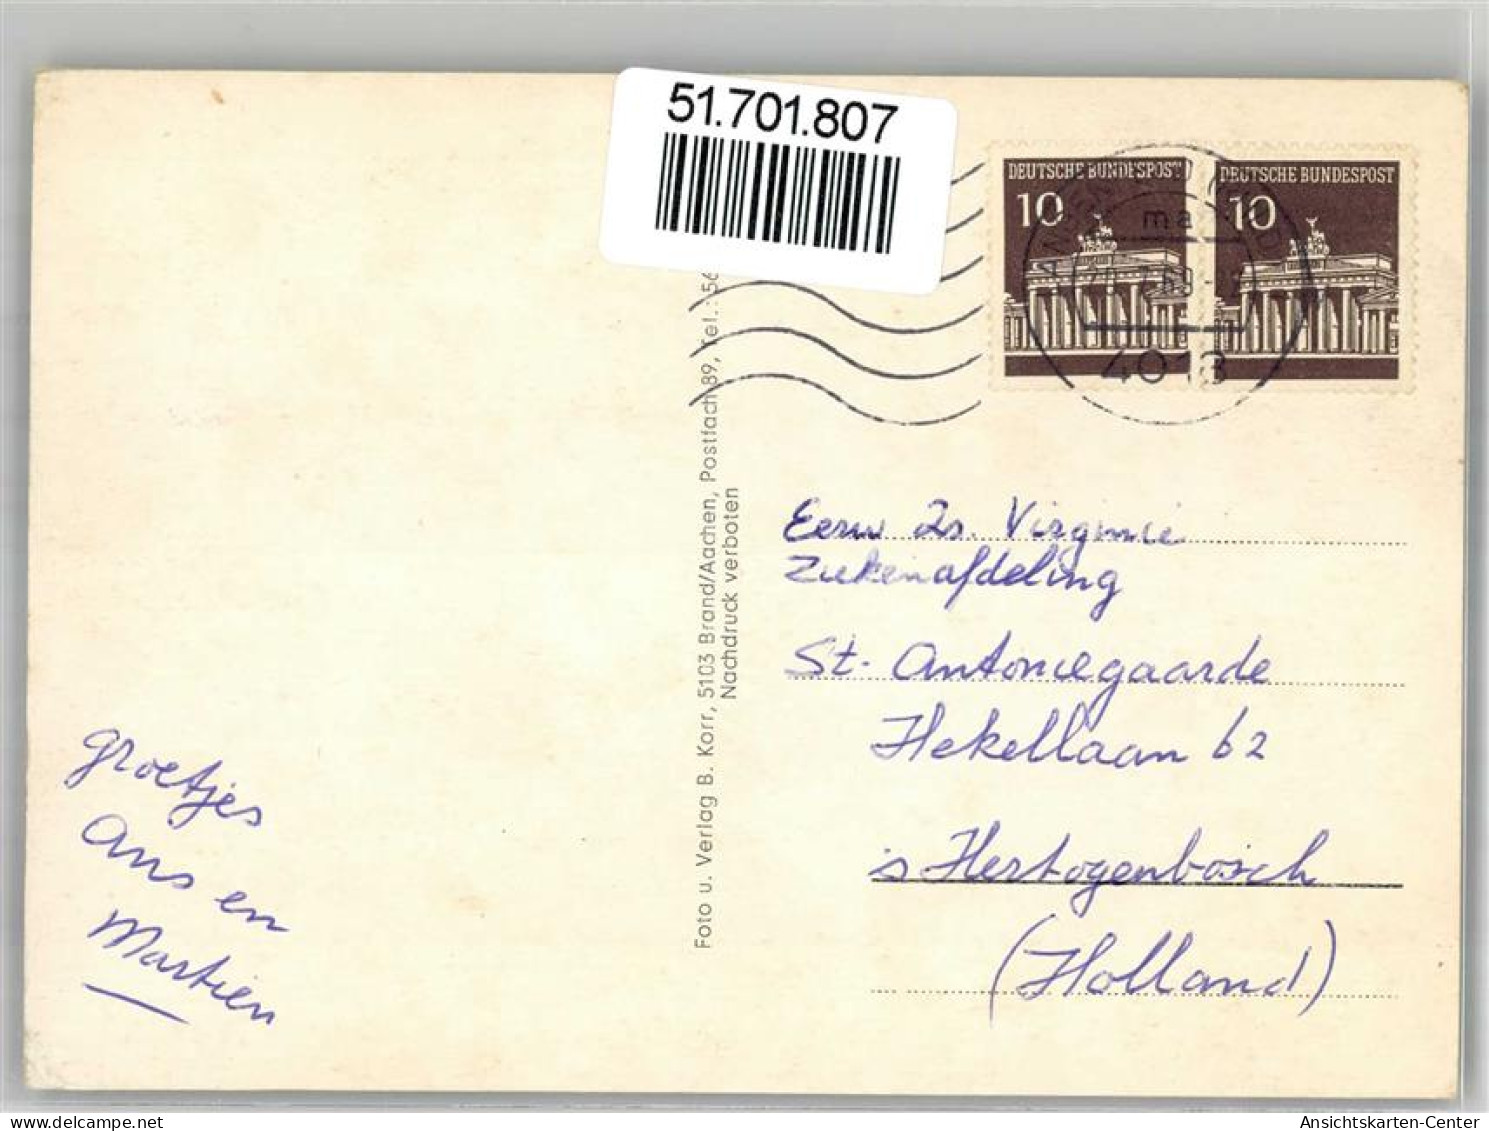 51.701.807
DEUTSCHE BUNDESPOST
10
DEUTSCHE BUNDESPOST
10
4018
Foto u. Verlag B. Korr, 5103 Brand/Aachen, Postfach 89, Tel.: 56
Nachdruck verboten
Eerw Zr. Virginie
Ziekenafdeling
St. Antoniegaarde
Hekellaan 62
s Hertogenbosch
(Holland)
groetjes
Ans en
Martien
Ansichtskarten-Center
delcampe.net